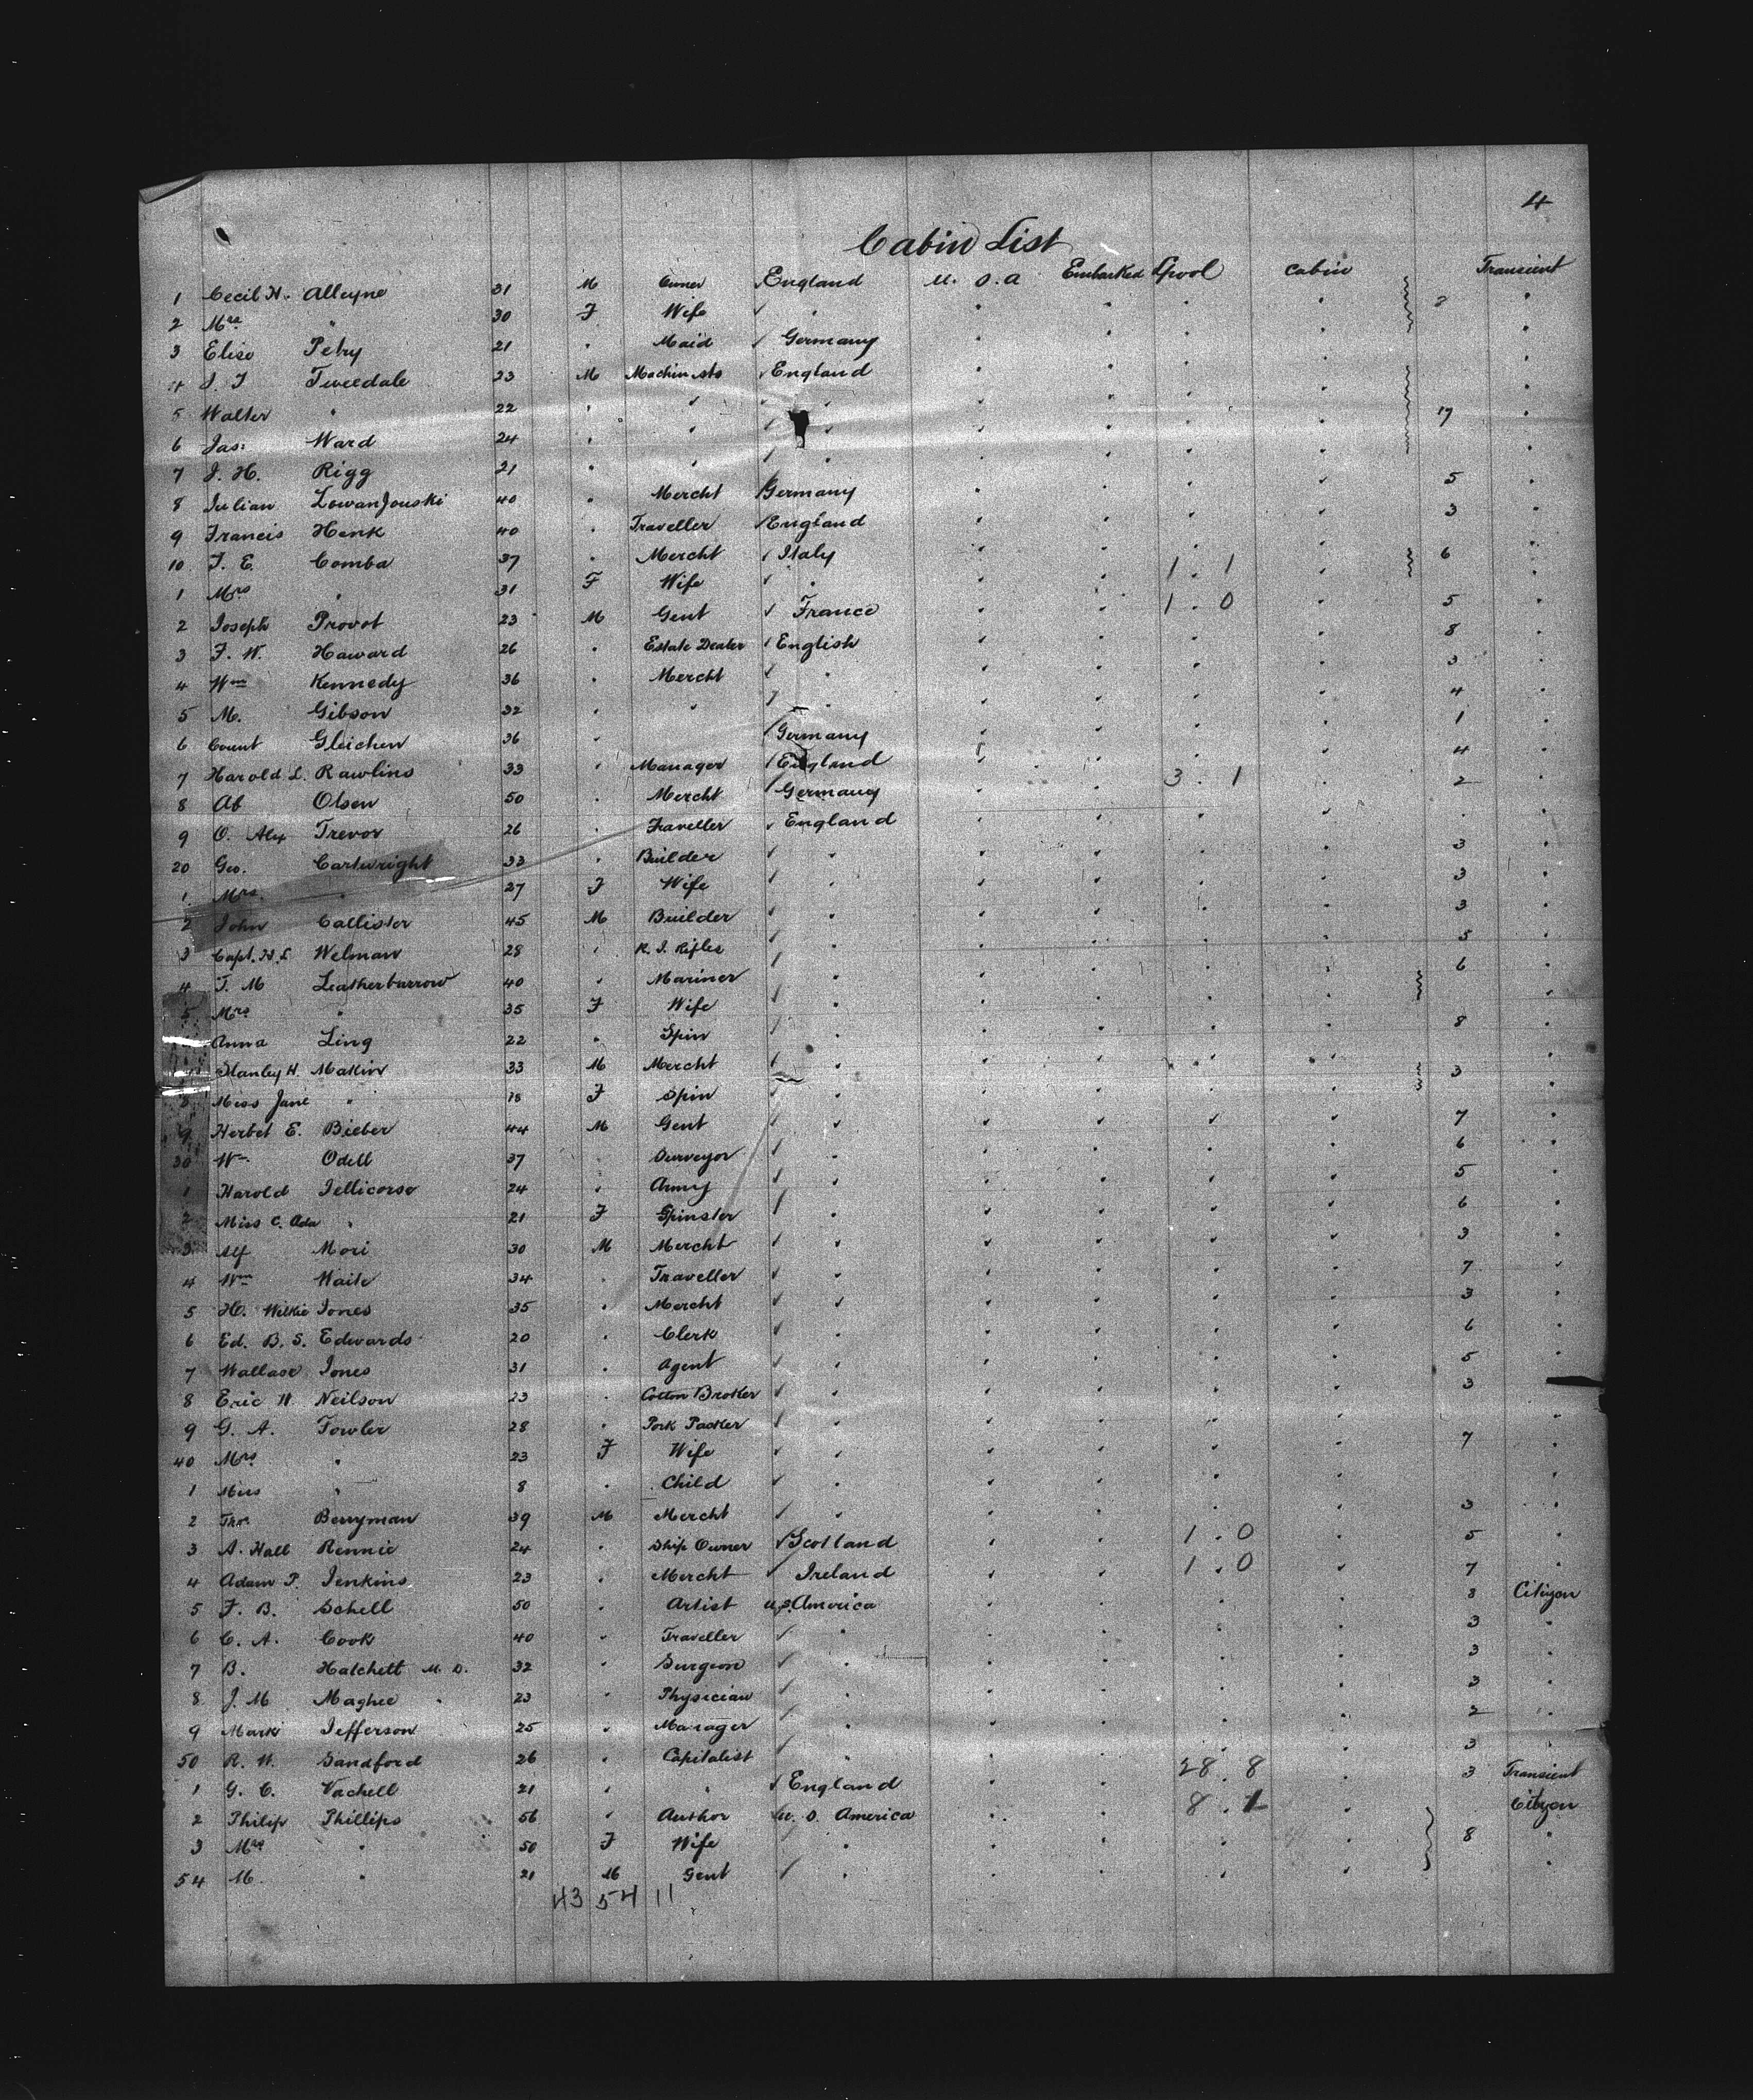 4
Cabin List
1 Cecil H. Alleyne 31 M Owner England U. S. A Embarked Lpool Cabin 3 Transient
2 Mrs " 30 F Wife "
3 Elise Petry 21 " Maid Germany
4 J. T Tweedale 23 M Machinists England
5 Walter " 22 " " " 17
6 Jas: Ward 24 " " "
7 J. H. Rigg 21 " " "
8 Julian 40 " Mercht Germany 5
9 Francis Henk 40 " Traveller England 3
10 F. E. Comba 37 " Mercht Italy 6
1 Mrs " 31 F Wife " 1 . 1
2 Joseph Provot 23 M Gent France 1 . 0 5
3 F. W. Haward 26 " Estate Dealer English 8
4 Wm Kennedy 36 " Mercht " 3
5 M. Gibson 32 " " " 4
6 Count Gleichen 36 " Germany 1
7 Harold L. Rawlins 33 " Manager England 4
8 Ab Olsen 50 " Mercht Germany 3 . 1 2
9 O. Alex Trevor 26 " Traveller England
20 Geo. Cartwright 33 " Builder " 3
1 Mrs. " 27 F Wife " 3
2 John Callister 45 M Builder " 3
3 Capt. H. L Welman 28 " R. I. Rifles " 5
4 T. M Leatherbarrow 40 " Mariner " 6
5 Mrs " 35 F Wife "
Anna Ling 22 " Spin " 8
Stanley H. Makin 33 M Mercht " 3
8 Miss Jane " 18 F Spin "
9 Herbet E. Bieber 44 M Gent " 7
30 Wm Odell 37 " Surveyor " 6
1 Harold Jellicorse 24 " Army " 5
2 Miss C. Ada " 21 F Spinster " 6
3 Alf Mori 30 M Mercht " 3
4 Wm Waite 34 " Traveller " 7
5 H. Wilkie Jones 35 " Mercht " 3
6 Ed. B. S. Edwards 20 " Clerk " 6
7 Wallase Jones 31 " Agent " 5
8 Eric W. Neilson 23 " Cotton Broker " 3
9 G. A. Fowler 28 " Pork Packer "
40 Mrs " 23 F Wife " 7
1 Miss " 8 " Child "
2 Thos Berryman 39 M Mercht " 3
3 A. Hall Rennie 24 " Ship Owner Scotland 1 . 0 5
4 Adam P. Jenkins 23 " Mercht Ireland 1 . 0 7
5 F. B. Schell 50 " Artist U.S. America 3 Citizen
6 C. A. Cook 40 " Traveller " 3
7 B. Hatchett M. D. 32 " Surgeon " 3
8 J. M Maghee " 23 " Physician " 3
9 Mark Jefferson 25 " Manager " 2
50 R. W. Sandford 26 " Capitalist " 3
1 G. C. Vachell 21 " " England 28 . 8 3 Transient
2 Philip Phillips 56 " Author U. S. America 8 . 1 Citizen
3 Mrs " 50 F Wife " 8 "
54 M. " 21 M Gent "
43 54 11